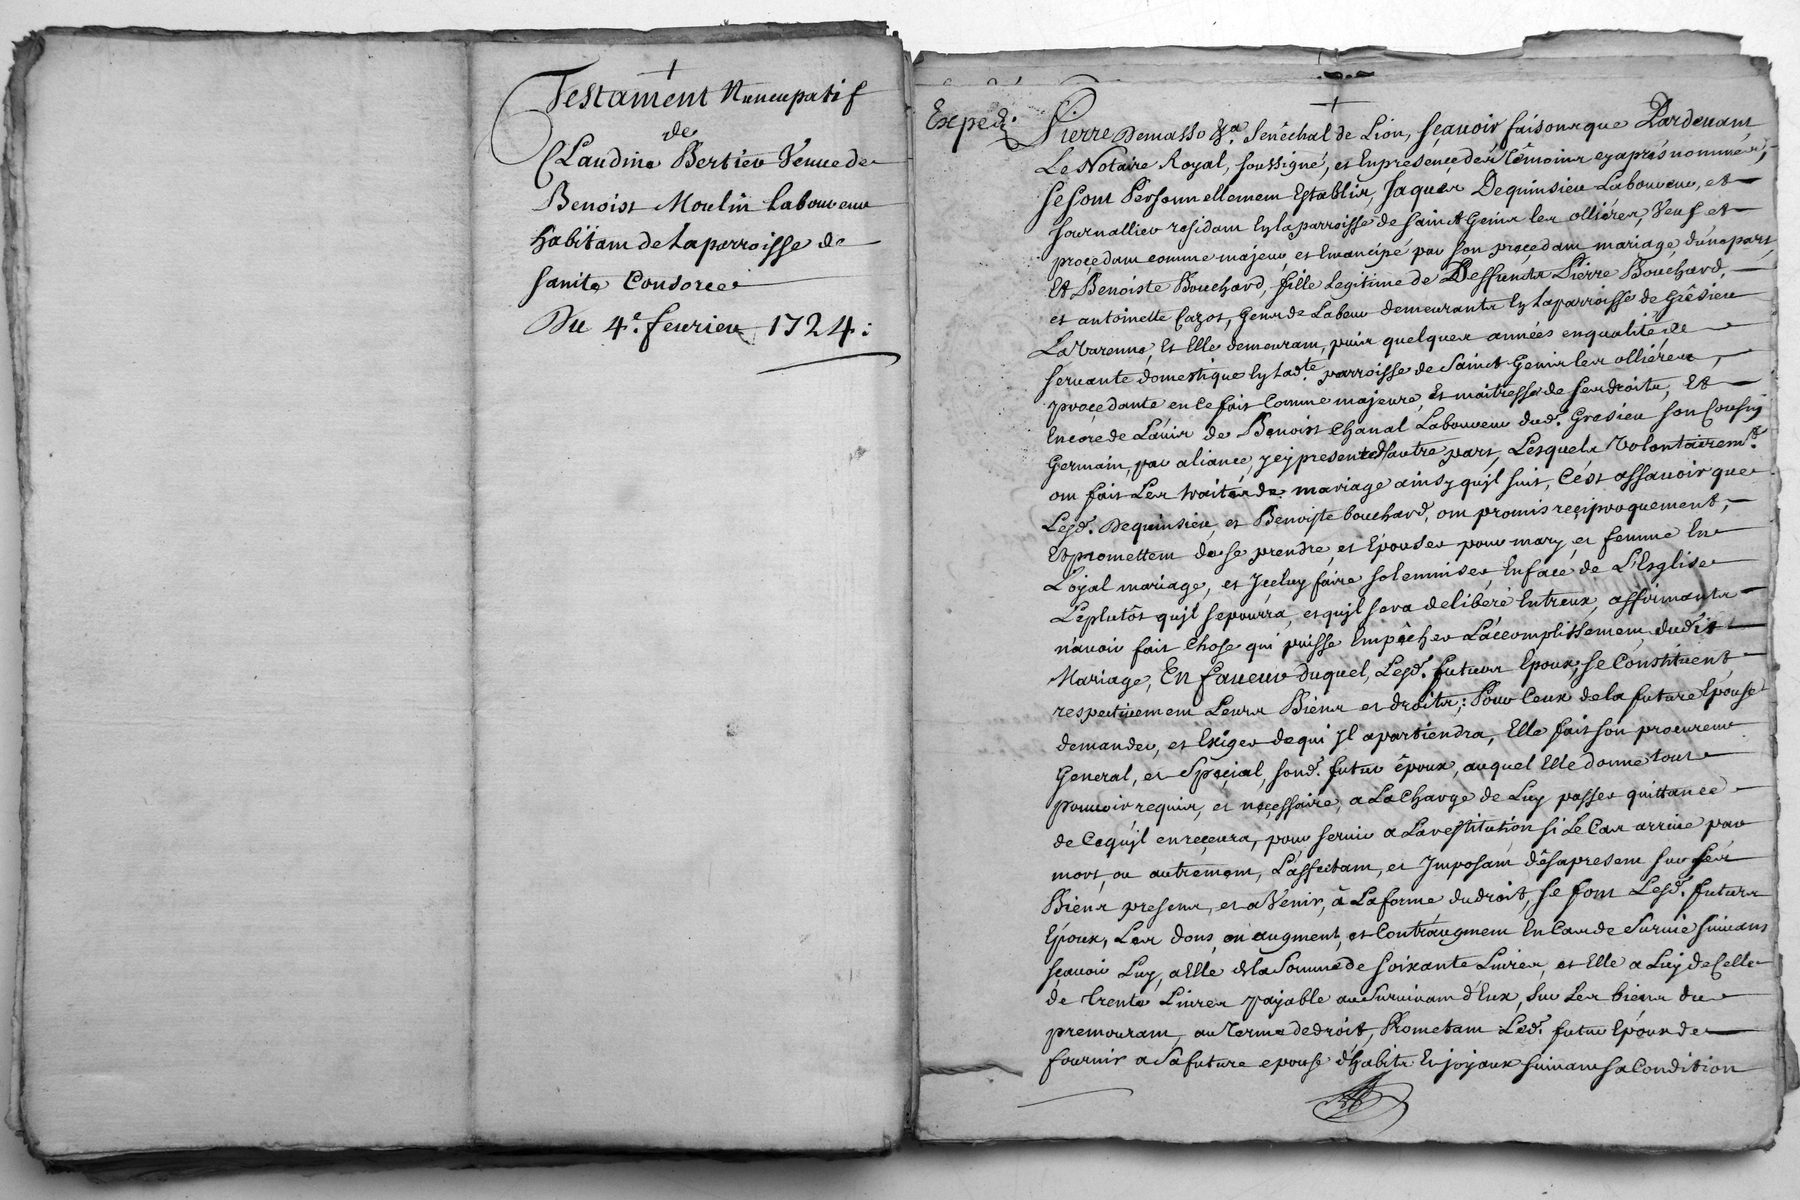 Testament Nuncupatif
de
Claudine Bertier Veuve de
Benoist Moulin Laboureur
habitam de Laparroisse de
sainte Consorce
Du 4e. feurier 1724:
Expedi.
Pierre Demasso &a. Senéchal de Lion, sçauoir faisons que Pardeuant
Le Notaire Royal, soussigné, et En presence des têmoins cy aprés nommez,
se sont Personnellement Establis, Jaques Dequinsieu Laboureur, et
Journallier residant En la parroisse de sainct Genis les olliéres, Veuf et
proçedant comme majeur, et Emancipé par son preçedant mariage, d'une part,
Et Benoiste Bouchard, fille Legitime de Deffuncts Pierre Bouchard,
et antoinette Cazot, Gens de Labeur demeurants En Laparroisse de Grêsieu
La Varenne, Et Elle demeurant, puis quelques années en qualité de
seruante domestique En Ladte. parroisse de Sainct Genis les olliéres,
proçedante en ce fait Comme majeure, et maitresse de ses droits, Et
Encore de L'auis de Benoist Chanal Laboureur dud. Gresieu son Cousin
Germain, par aliance, y cy present d'autre part, Lesquels Volontairemt.
ont fait Les traités de mariage ainsy qu'jl suit, C'ést assauoir que
Lesd. Dequinsieu, et Benoiste bouchard, ont promis reçiproquement,
Et promettent de se prendre, et Epouser pour mary et femme En
Loyal mariage, et Jceluy faire solemniser En face de L'Esglise
Leplutôt qu'jl se pourra, et qu'jl sera deliberé Entreux, affirmants
n'auoir fait Chose qui puisse Empêcher L'accomplissement dudit
Mariage, En faueur Duquel, Lesd. futurs Epoux, se Constituent
respectiuement Leurs Biens et droits; Pour Ceux de la future Epouse
demander, et Exiger de qui Jl apartiendra, Elle fait son procureur
General, et Spécial, sond. futur époux, auquel Elle donne tout
pouuoir requis, et neçessaire, a La Charge de Luy passer quittance
de Ce qu'jl en reçeura, pour seruir a La restitution si Le Cas arriue par
mort, ou autrement, L'affectant, et Jmposant dêsapresent sur ses
Biens presens, et a Venir, à La forme du droit, se font Lesd. futurs
Epoux, Les dons, en augment, et Contraugment En Cas de Suruie suiuans
sçauoir Luy, a Elle de la Somme de soixante Liures, et Elle a Luy de Celle
de trente Liures payable au Suruiuant d'Eux, Sur Les biens du
premourant, au Terme de droit, Promettant Led. futur Epoux de
fournir a Sa future epouse d'habits En joyaux suiuant sa Condition